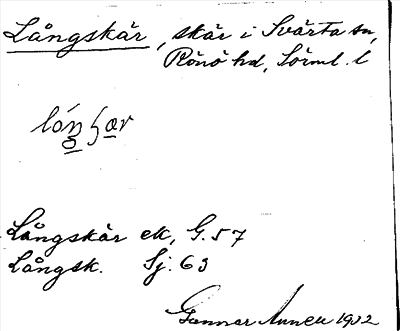 Långskär, skär i Svärta sn,
Rönö hd, Sörml. l
Långskär ek, G. 57
Långsk. Sj. 63
Gunnar 1932